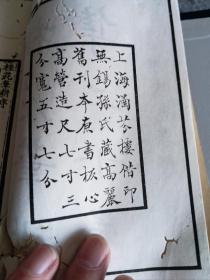 上海涵芬樓借印
無錫孫氏藏高麗
舊刊本原書板心
高營造尺七寸三
分寬五寸七分
桂苑筆耕序